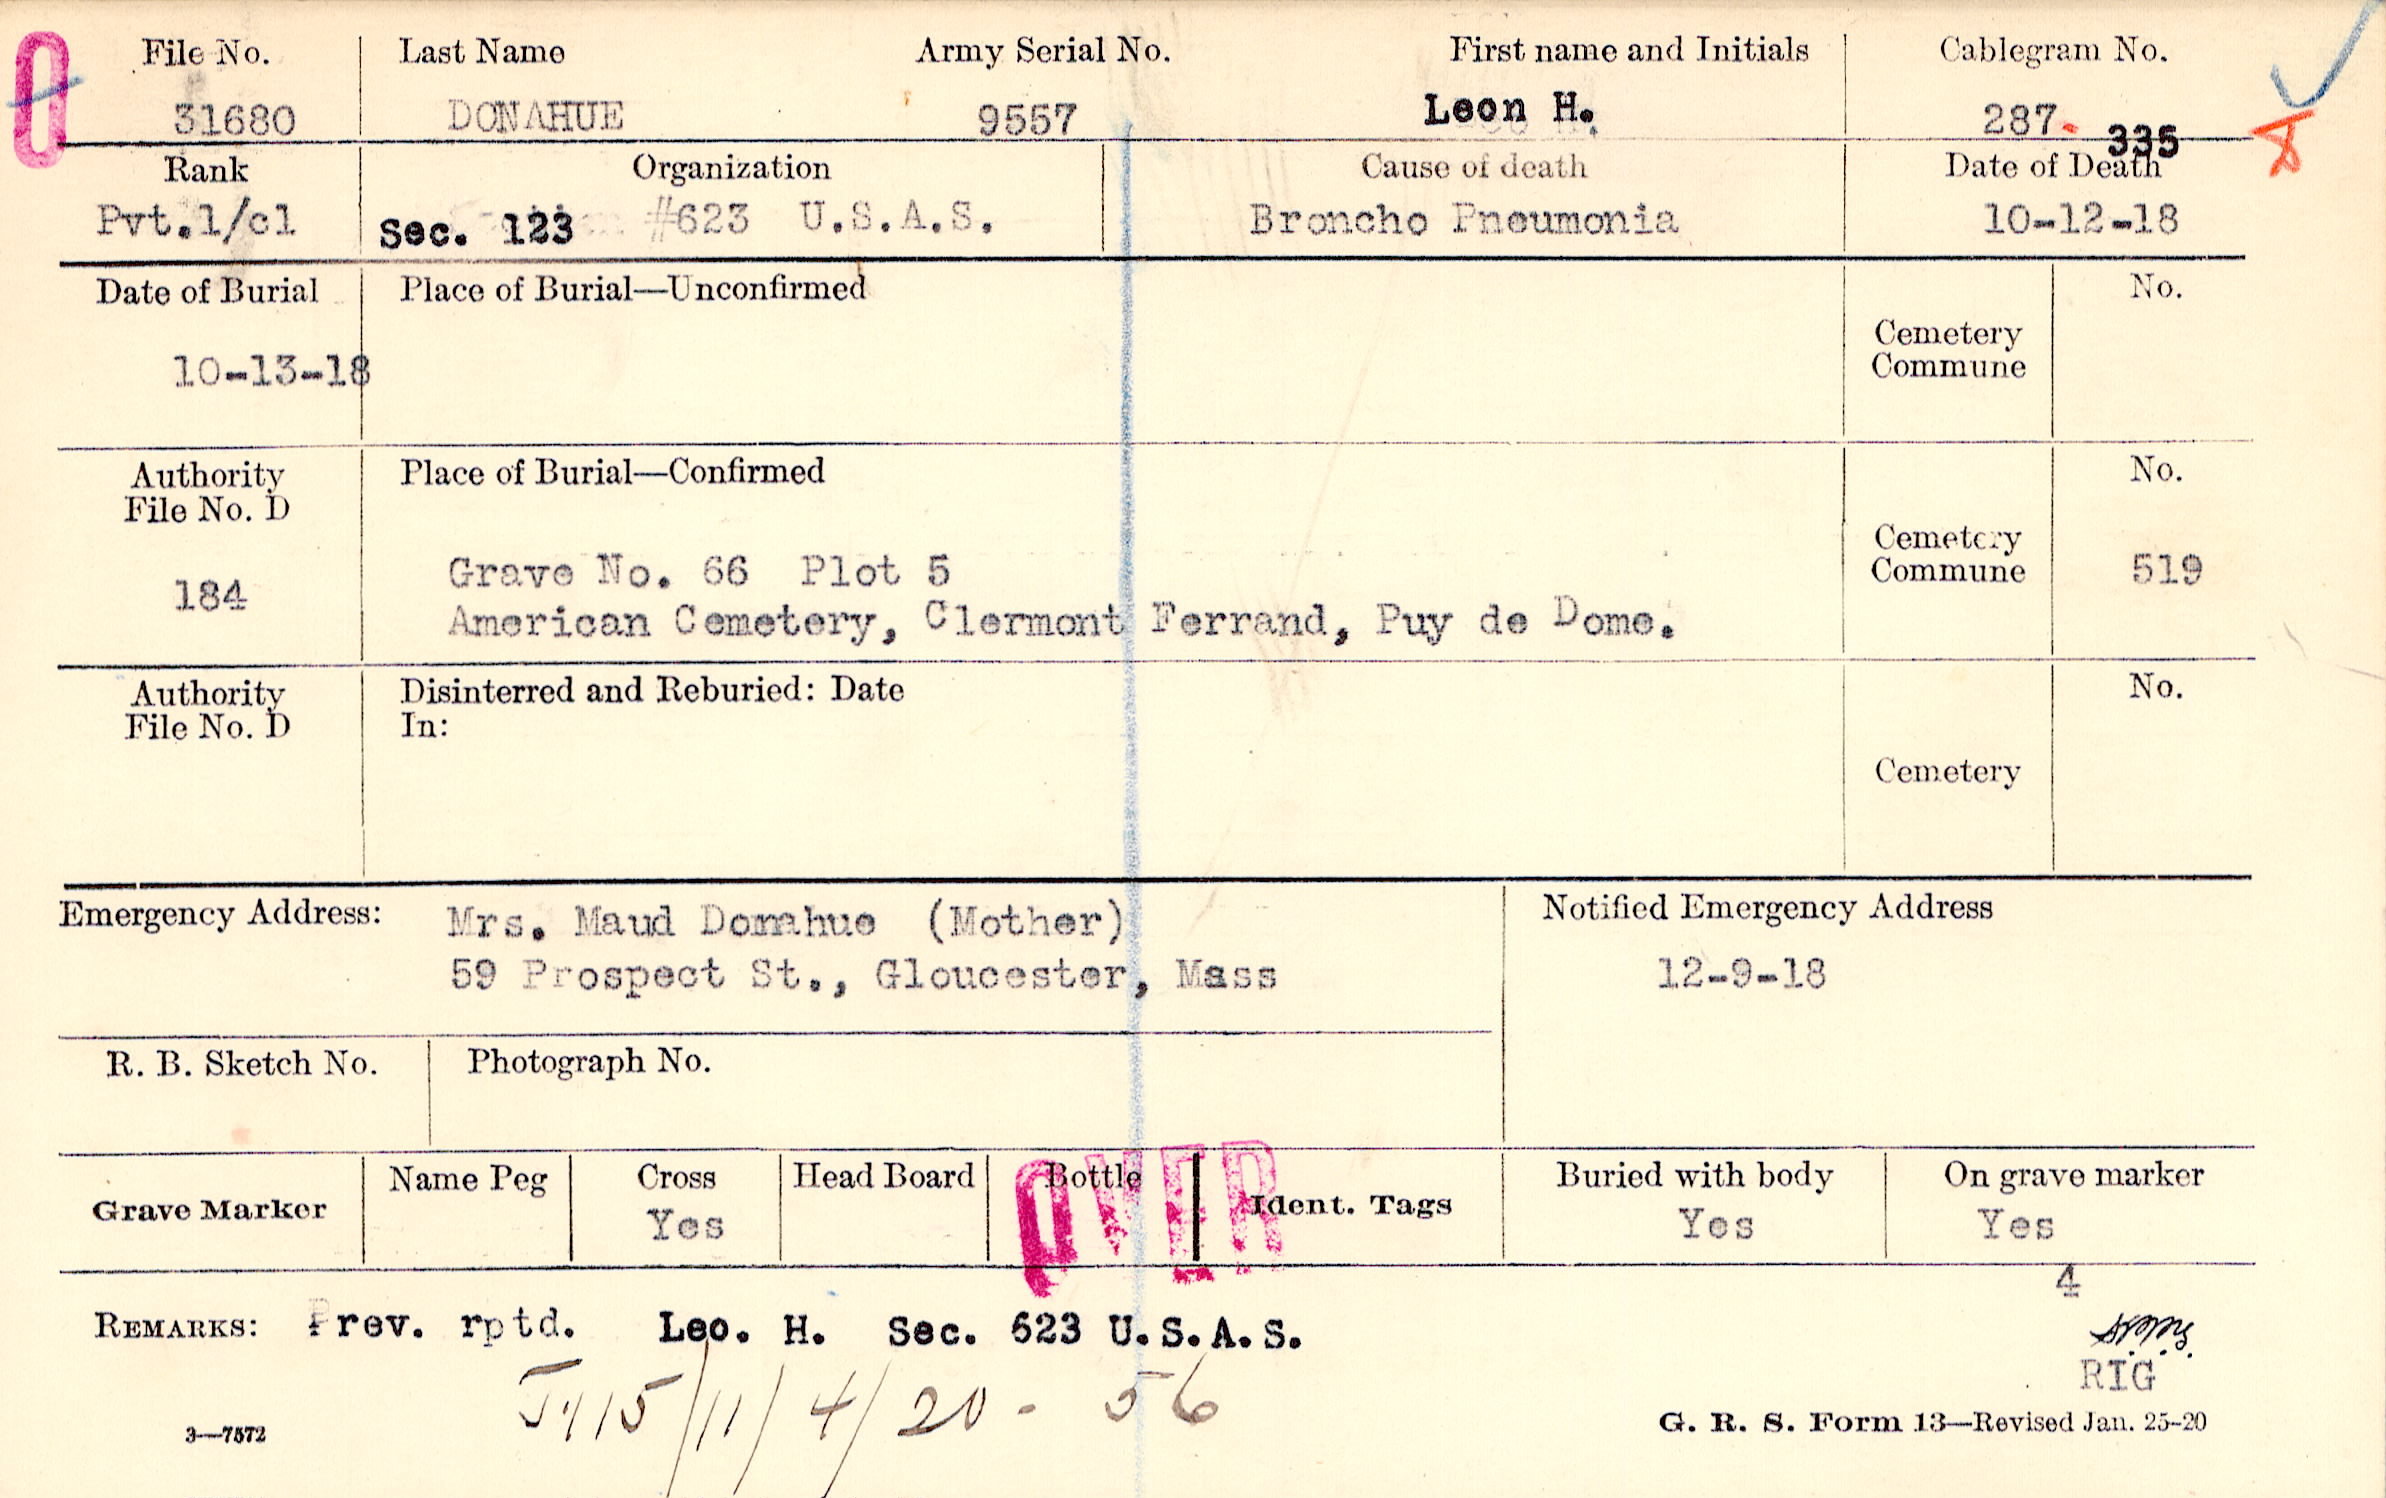 File No. Last Name Army Serial No. First name and Initials Cablegram No.
31680 DONAHUE 9557 Leon H. 287. 335
Rank Organization Cause of death Date of Death
Pvt.1/cl Sec. 123 #623 U.S.A.S. Broncho Pneumonia 10-12-18
Date of Burial Place of Burial—Unconfirmed No.
Cemetery
Commune
10-13-18
Authority Place of Burial—Confirmed No.
File No. D
Cemetery
Commune 519
184 Grave No. 66 Plot 5
American Cemetery, Clermont Ferrand, Puy de Dome.
Authority Disinterred and Reburied: Date No.
File No. D In:
Cemetery
Emergency Address: Mrs. Maud Donahue (Mother) Notified Emergency Address
59 Prospect St., Gloucester, Mass 12-9-18
R. B. Sketch No. Photograph No.
Grave Marker Name Peg Cross Head Board Bottle Ident. Tags Buried with body On grave marker
Yes Yes Yes
OVER
4
REMARKS: Prev. rptd. Leo. H. Sec. 623 U.S.A.S.
RIG
/11/4/20 - 56
3—7572 G. R. S. Form 13—Revised Jan. 25-20